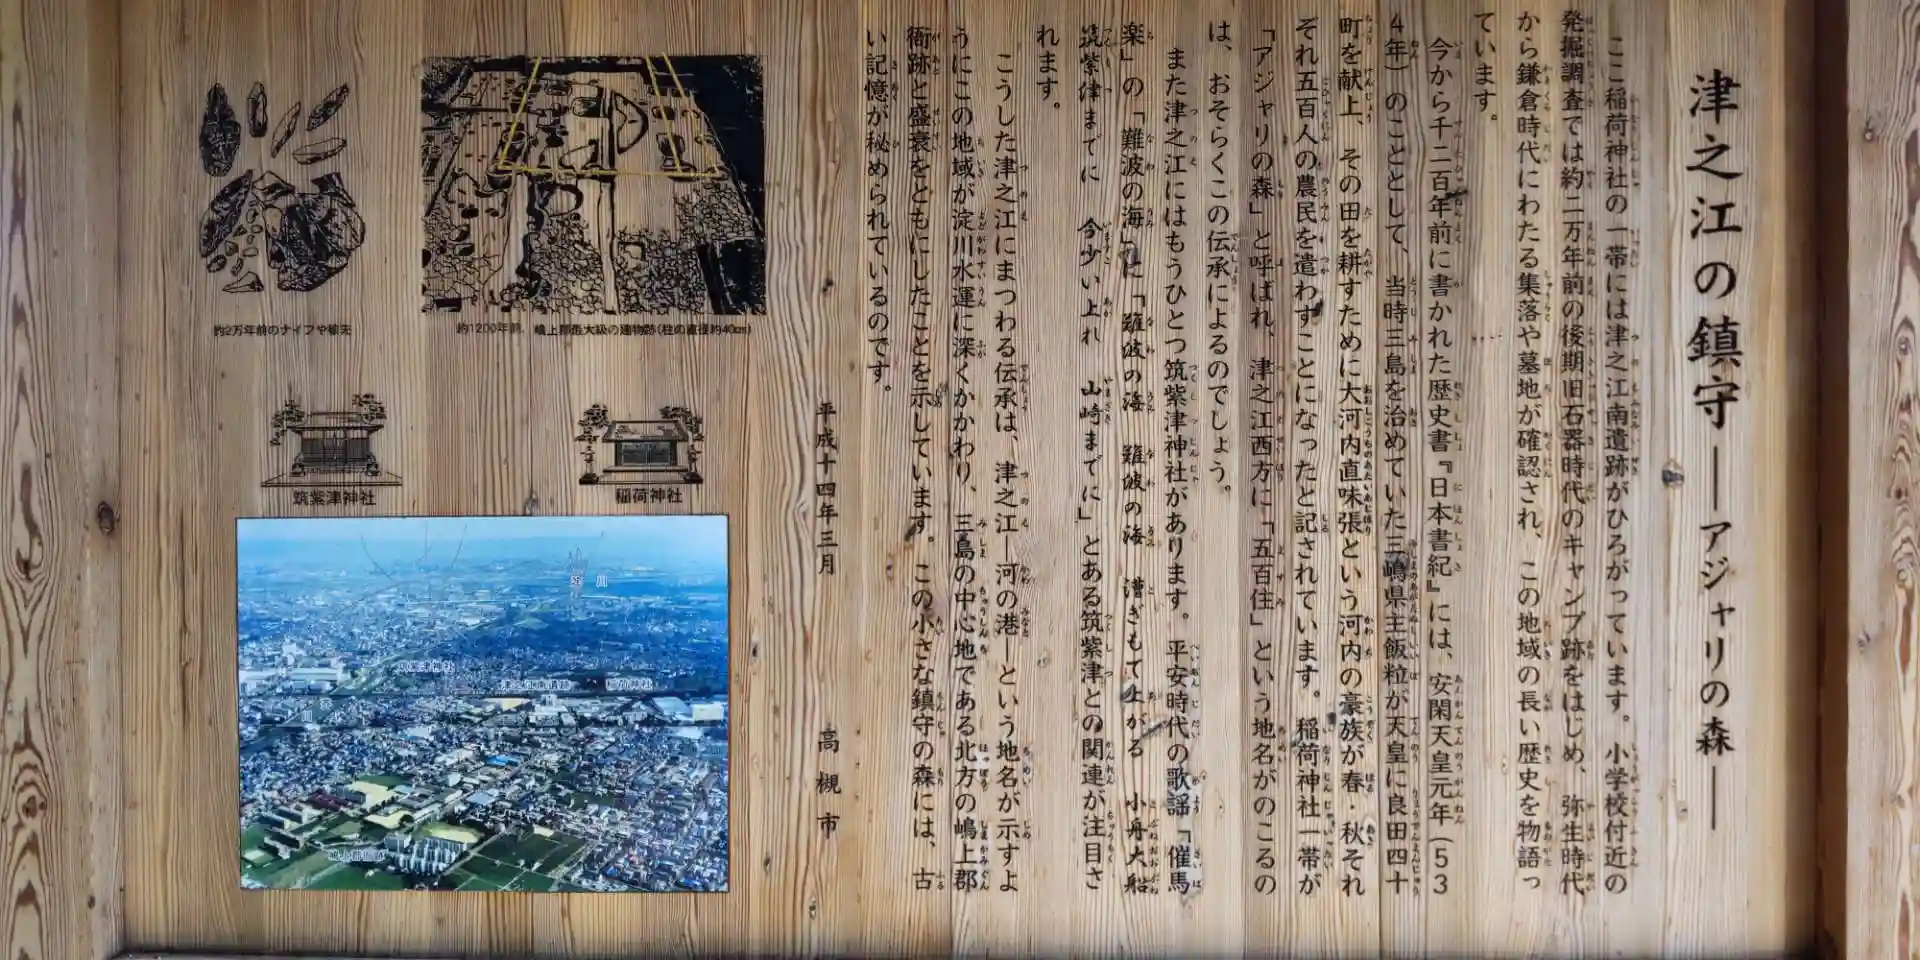 津之江の鎮守―アジャリの森―
ここ稲荷神社の一帯には津之江南遺跡がひろがっています。小学校付近の
発掘調査では約二万年前の後期旧石器時代のキャンプ跡をはじめ、弥生時代
から鎌倉時代にわたる集落や墓地が確認され、この地域の長い歴史を物語っ
ています。
今から千二百年前に書かれた歴史書『日本書紀』には、安閑天皇元年（53
4年）のこととして、当時三島を治めていた三嶋県主飯粒が天皇に良田四十
町を献上、その田を耕すために大河内直味張という河内の豪族が春・秋それ
ぞれ五百人の農民を遣わすことになったと記されています。稲荷神社一帯が
「アジャリの森」と呼ばれ、津之江西方に「五百住」という地名がのこるの
は、おそらくこの伝承によるのでしょう。
また津之江にはもうひとつ筑紫津神社があります。平安時代の歌謡『催馬
楽』の「難波の海」に「難波の海　難波の海　漕ぎもて上がる　小舟大船
筑紫津までに　今少い上れ　山崎までに」とある筑紫津との関連が注目さ
れます。
こうした津之江にまつわる伝承は、津之江―河の港―という地名が示すよ
うにこの地域が淀川水運に深くかかわり、三島の中心地である北方の嶋上郡
衙跡と盛衰をともにしたことを示しています。この小さな鎮守の森には、古
い記憶が秘められているのです。
平成十四年三月　高槻市
約1200年前、嶋上郡最大級の建物跡(柱の直径約40㎝)
約2万年前のナイフや槍先
稲荷神社
筑紫津神社
淀川
筑紫津神社
津之江南遺跡
稲荷神社
川
嶋上郡衙跡